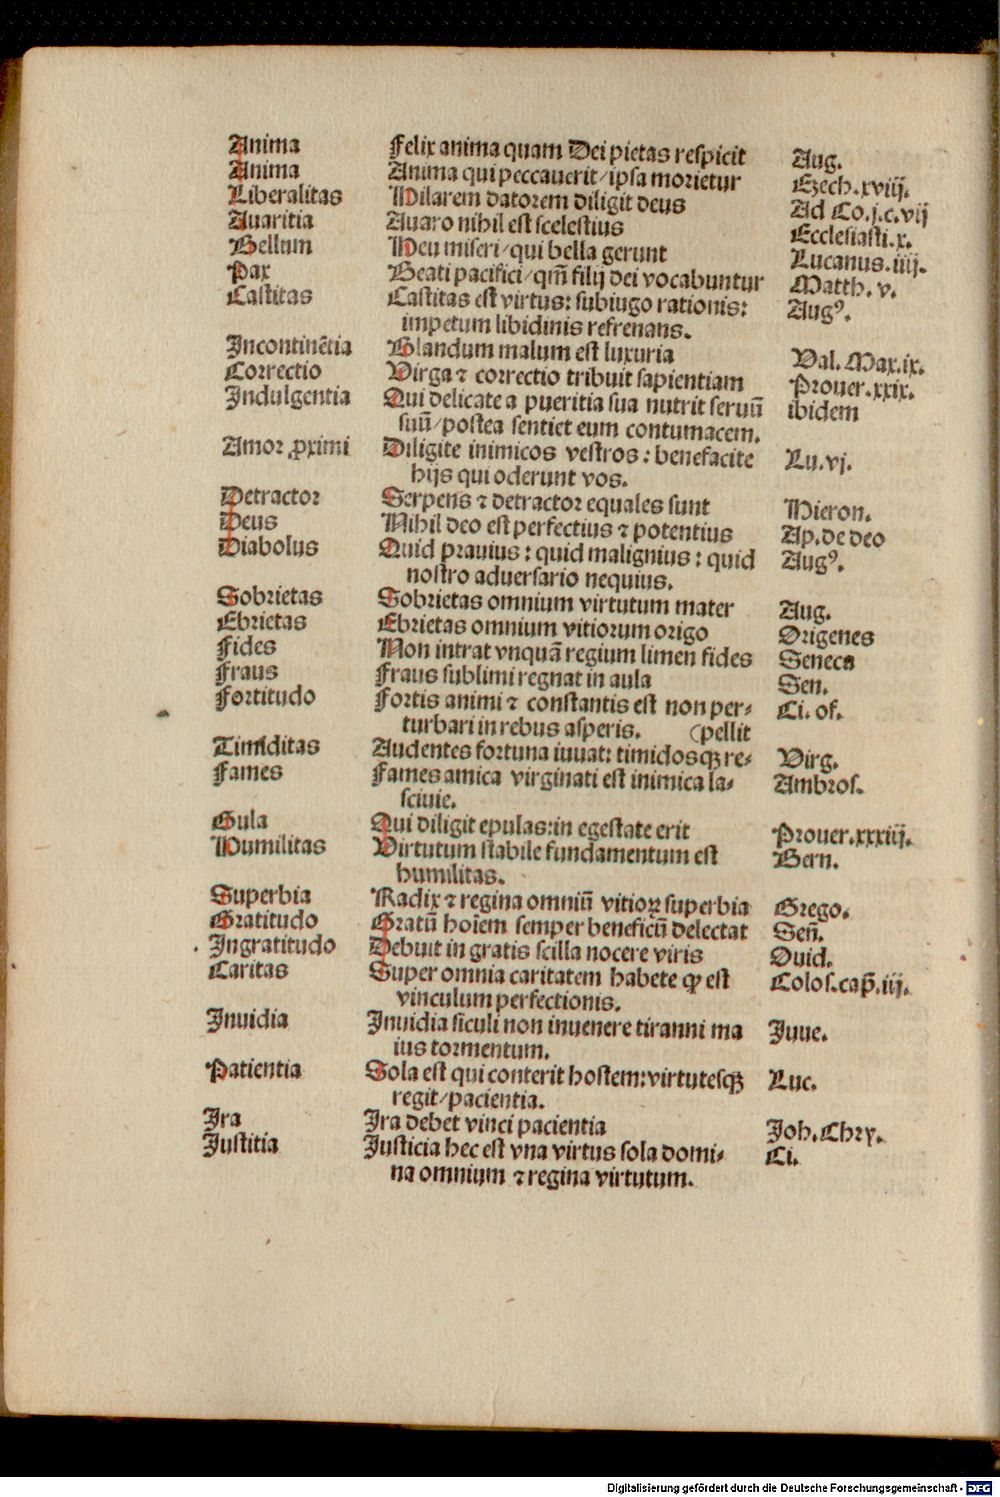 Anima Felix anima quam Dei pietas respicit Aug.
Anima Anima qui peccauerit/ipsa morietur Ezech.xviij.
Liberalitas Hilarem datorem diligit deus Ad Co.j.c.vij
Auaritia Auaro nihil est scelestius Ecclesiasti.x.
Bellum Heu miseri/qui bella gerunt Lucanus.iiij.
Pax Beati pacifici/qm̄ filij dei vocabuntur Matth.v.
Castitas Castitas est virtus: subiugo rationis: Augꝰ.
impetum libidinis refrenans.
Incontinẽtia Blandum malum est luxuria Val.Max.ix.
Correctio Virga ⁊ correctio tribuit sapientiam Prouer.xxix.
Indulgentia Qui delicate a pueritia sua nutrit seruū ibidem
suū/postea sentiet eum contumacem.
Amor ꝓximi Diligite inimicos vestros: benefacite Lu.vj.
hijs qui oderunt vos.
Detractor Serpens ⁊ detractor equales sunt Hieron.
Deus Nihil deo est perfectius ⁊ potentius Ap.de deo
Diabolus Quid prauius: quid malignius: quid Augꝰ.
nostro aduersario nequius.
Sobrietas Sobrietas omnium virtutum mater Aug.
Ebrietas Ebrietas omnium vitiorum origo Origenes
Fides Non intrat vnquā regium limen fides Seneca
Fraus Fraus sublimi regnat in aula Sen.
Fortitudo Fortis animi ⁊ constantis est non per⸗ Ci.of.
turbari in rebus asperis. (pellit
Timiditas Audentes fortuna iuuat: timidosqꝫ re⸗ Virg.
Fames Fames amica virginati est inimica la⸗ Ambros.
sciuie.
Gula Qui diligit epulas:in egestate erit Prouer.xxxiij.
Humilitas Virtutum stabile fundamentum est Bern.
humilitas.
Superbia Radix ⁊ regina omniū vitioꝝ superbia Grego.
Gratitudo Gratū hoīem semper beneficiū delectat Señ.
Ingratitudo Debuit in gratis scilla nocere viris Ouid.
Caritas Super omnia caritatem habete ꝙ est Colos.cap̄.iij.
vinculum perfectionis.
Inuidia Inuidia siculi non inuenere tiranni ma Juue.
ius tormentum.
Patientia Sola est qui conterit hostem:virtutesqꝫ Luc.
regit/pacientia.
Ira Ira debet vinci pacientia Joh.Chry.
Justitia Justicia hec est vna virtus sola domi⸗ Ci.
na omnium ⁊ regina virtutum.
Digitalisierung gefördert durch die Deutsche Forschungsgemeinschaft - DFG